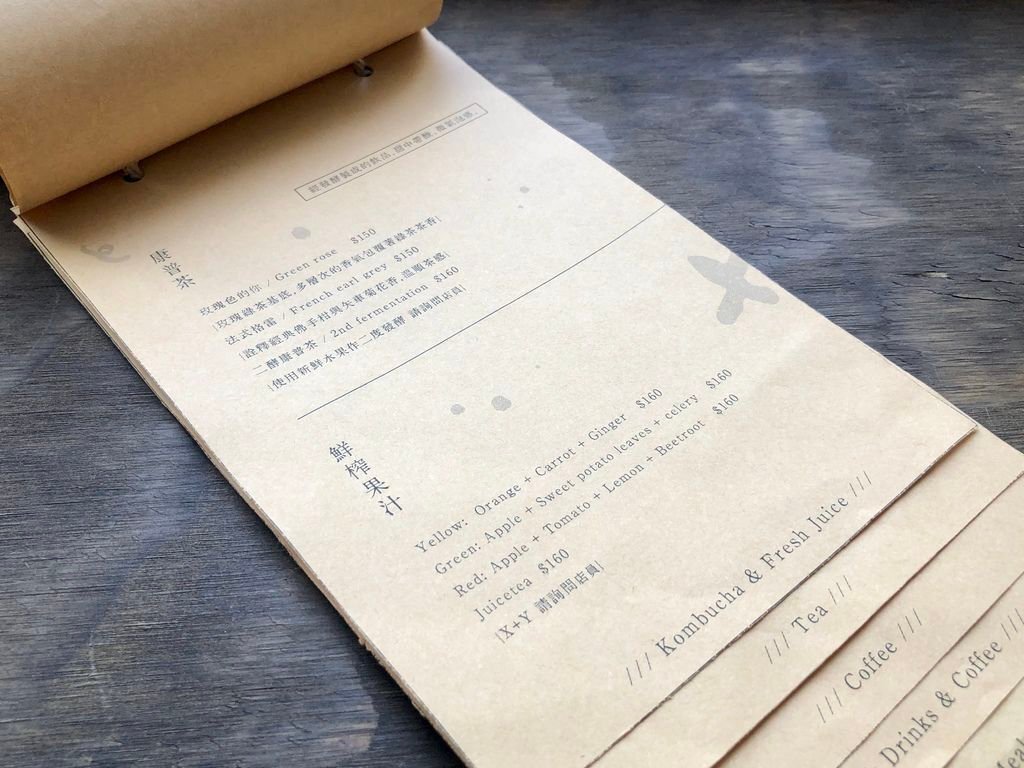 經發酵製成的飲品,甜中帶酸,微氣泡感。
康普茶
玫瑰色的你 / Green rose $150
|玫瑰綠茶基底,多層次的香氣包覆著綠茶茶香|
法式格雷 / French earl grey $150
|詮釋經典佛手柑與矢車菊花香,溫順茶感|
二酵康普茶 / 2nd fermentation $160
|使用新鮮水果作二度發酵 請詢問店員|
鮮榨果汁
Yellow: Orange + Carrot + Ginger $160
Green: Apple + Sweet potato leaves + celery $160
Red: Apple + Tomato + Lemon + Beetroot $160
Juicetea $160
|X+Y 請詢問店員|
/// Kombucha & Fresh Juice ///
/// Tea ///
/// Coffee ///
Drinks & Coffee ///